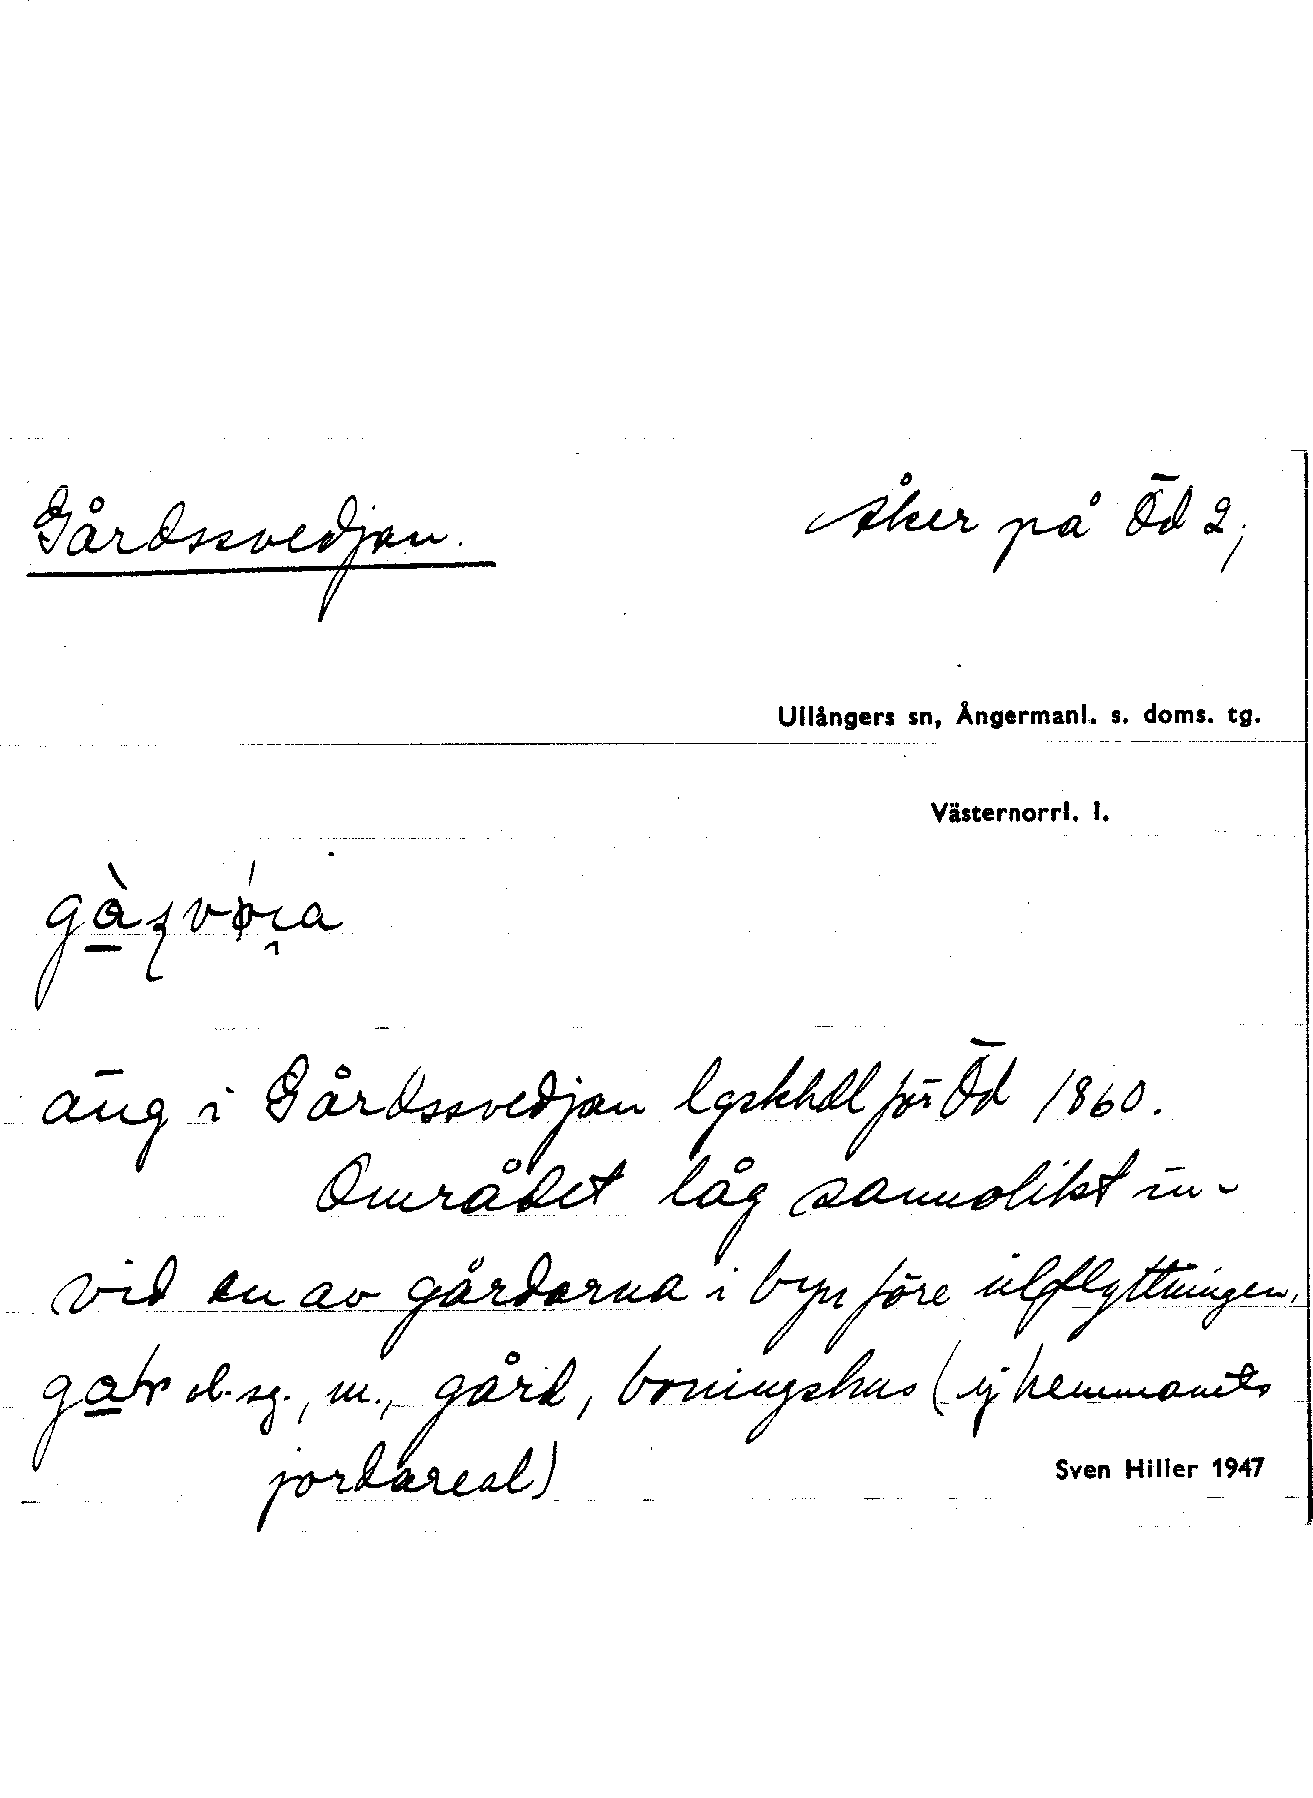 Gårdssvedjan.
Åker på Öd 2;
Ullångers sn, Ångermanl. s. doms. tg.
Västernorrl. l.
äng i Gårdssvedjan lgskhdl för Öd 1860.
Området låg sannolikt in-
vid en av gårdarna i byn före utflyttningen.
ob. sg., m., gård, boningshus (ej hemmanets
jordareal)
Sven Hiller 1947